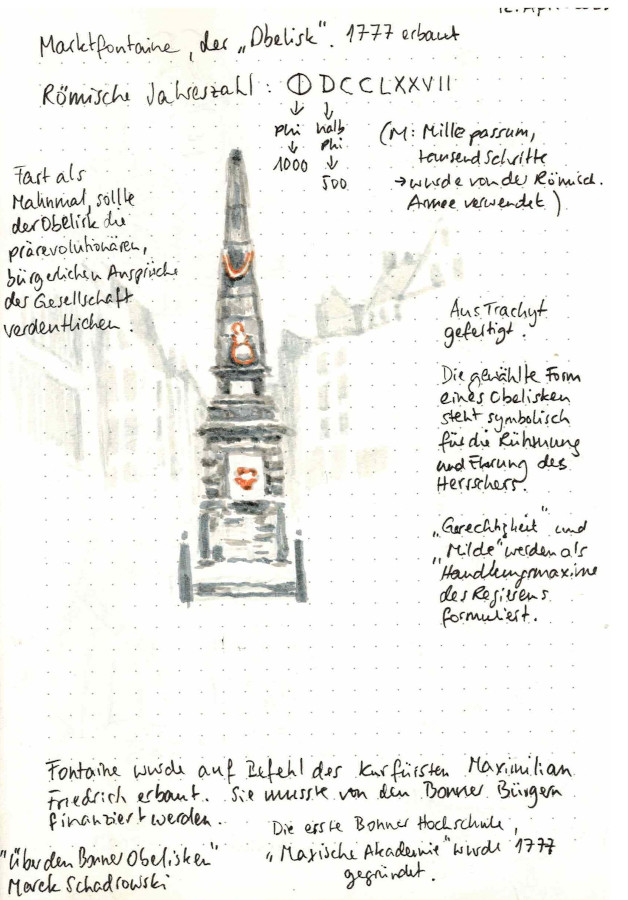 12. Apr
Marktfontaine, der „Obelisk". 1777 erbaut
Römische Jahreszahl: ⏀ D C C L X X V I I
↓ ↓
phi halb
↓ phi
1000 ↓
500
(M: Mille passum,
tausend Schritte
→ wurde von der Römisch.
Armee verwendet)
Fast als
Mahnmal, sollte
der Obelisk die
prärevolutionären,
bürgerlichen Ansprüche
der Gesellschaft
verdeutlichen.
Aus Trachyt
gefertigt.
Die gewählte Form
eines Obelisken
steht symbolisch
für die Rühmung
und Ehrung des
Herrschers.
„Gerechtigkeit" und
„Milde" werden als
Handlungsmaxime
des Regierens
formuliert.
Fontaine wurde auf Befehl des Kurfürsten Maximilian
Friedrich erbaut. Sie musste von den Bonner Bürgern
finanziert werden.
Die erste Bonner Hochschule,
„Maxische Akademie" wurde 1777
gegründet.
"Über den Bonner Obelisken"
Marek Schadrowski